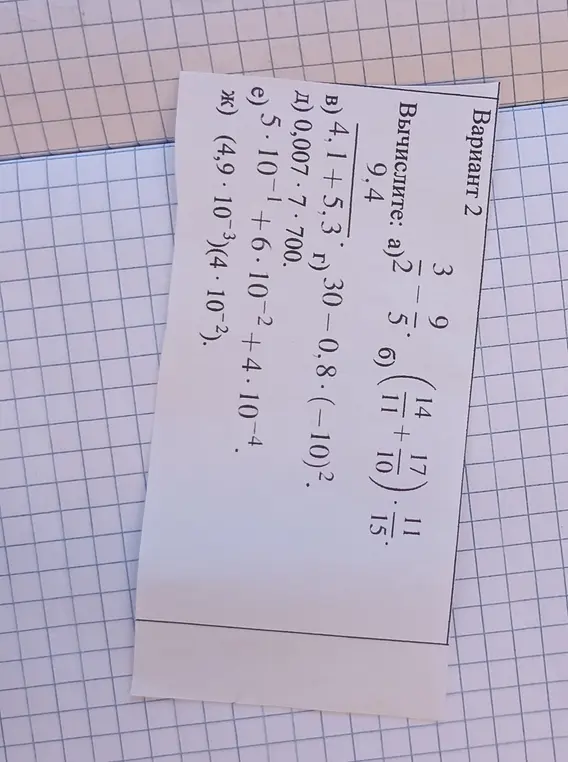 Вариант 2
Вычислите: а) 3/2 − 9/5. б) (14/11 + 17/10) · 11/15.
9,4
в) 4,1 + 5,3. г) 30 − 0,8 · (−10)².
д) 0,007 · 7 · 700.
е) 5 · 10⁻¹ + 6 · 10⁻² + 4 · 10⁻⁴.
ж) (4,9 · 10⁻³)(4 · 10⁻²).